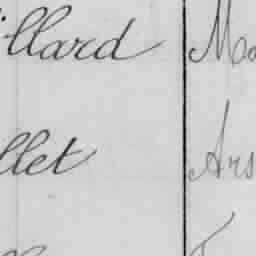 illard Ma
llet Ars